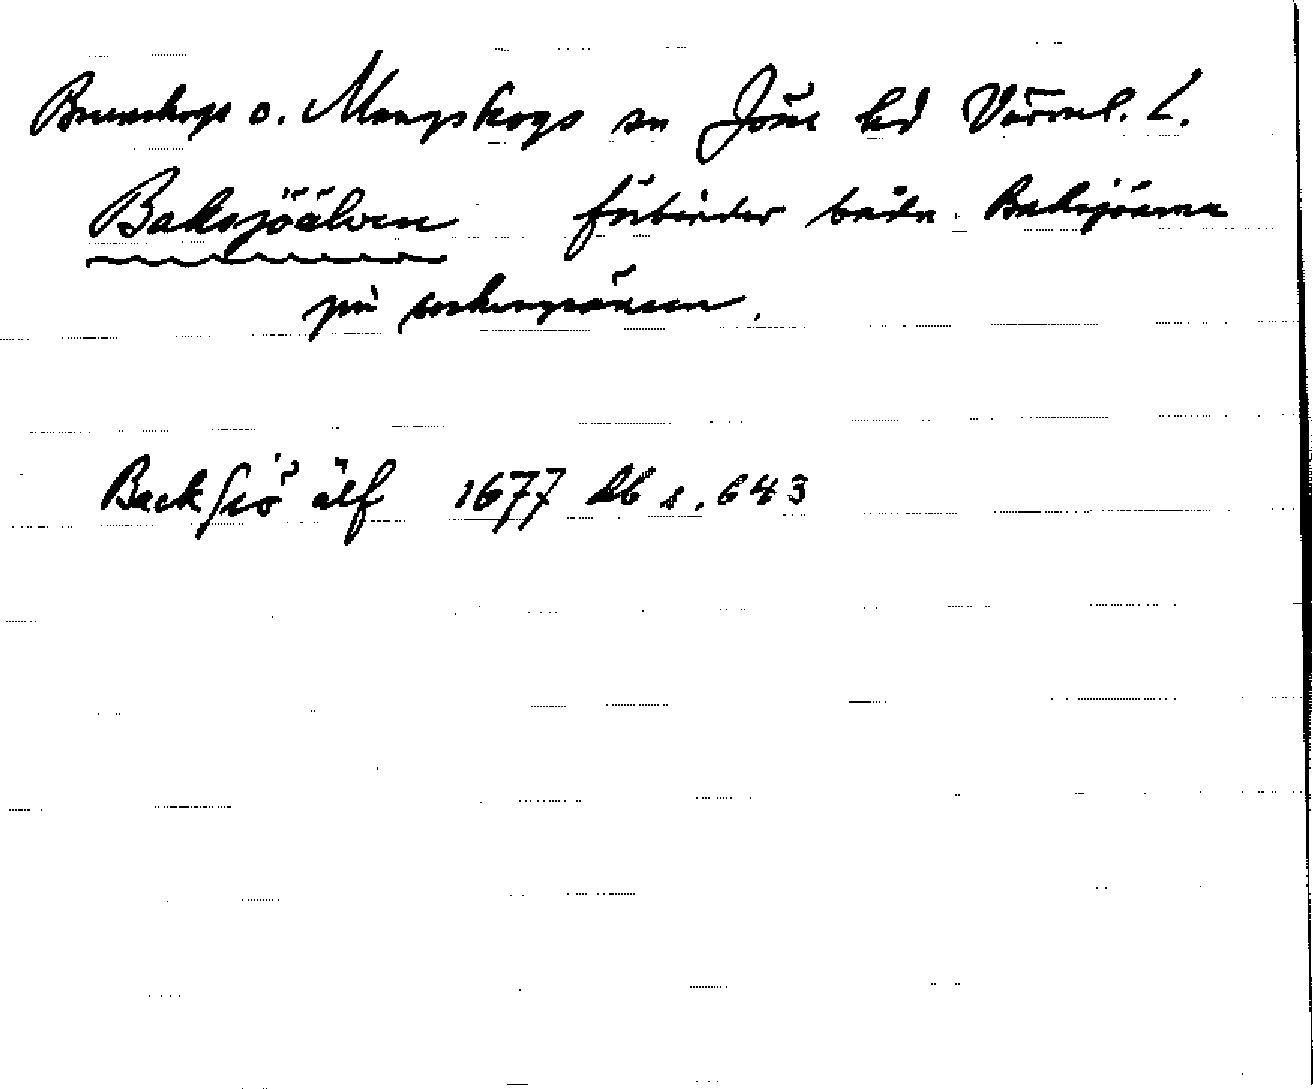 Brunskogs o. Mangskogs sn Jösse hd Värml. L.
Baksjöälven förbinder båda Baksjöarna
på sockengränsen.
Backsiö älf 1677 db s. 643